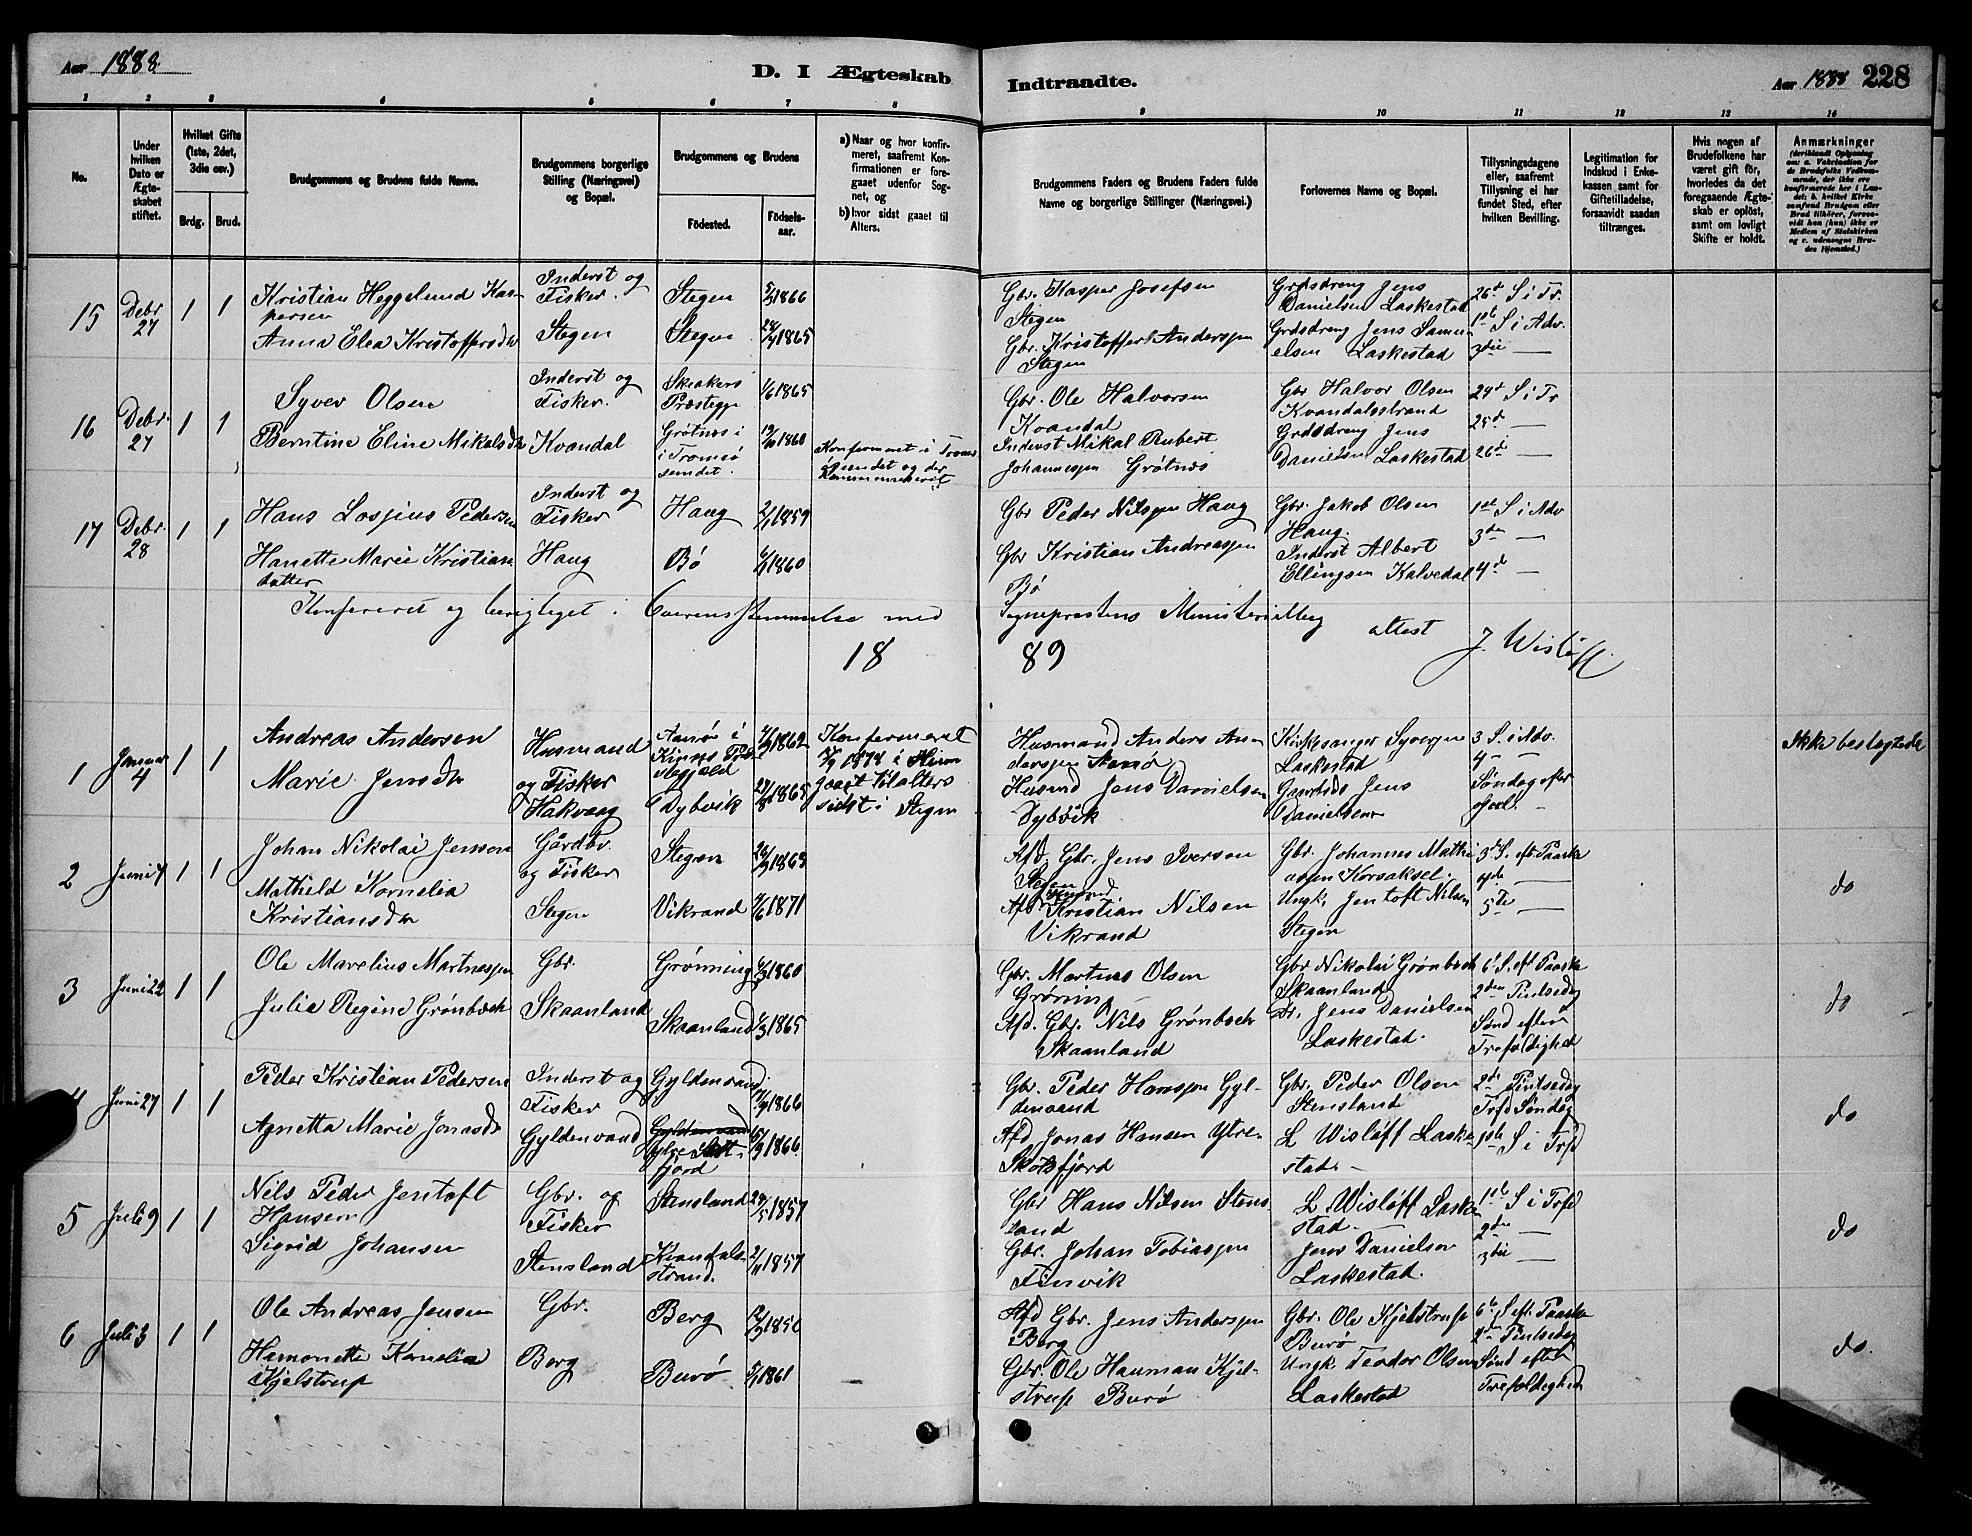 Aar 1888
D. I Ægteskab
Indtraadte.
Aar 1888 228
1 2 3 4 5 6 7 8
9 10 11 12 13 14
No.
Under hvilken Dato er Ægteskabet stiftet.
Hvilket Gifte (1ste, 2det, 3die osv.)
Brdg. Brud.
Brudgommens og Brudens fulde Navne.
Brudgommens borgerlige Stilling (Næringsvei) og Bopæl.
Brudgommens og Brudens
Fødested.
Fødselsaar.
a) Naar og hvor konfirmeret, saafremt Konfirmationen er foregaaet udenfor Sognet, og
b) hvor sidst gaaet til Alters.
Brudgommens Faders og Brudens Faders fulde Navne og borgerlige Stillinger (Næringsvei.)
Forlovernes Navne og Bopæl.
Tillysningsdagene eller, saafremt Tillysning ei har fundet Sted, efter hvilken Bevilling.
Legitimation for Indskud i Enkekassen samt for Giftetilladelse, forsaavidt saadan tiltrænges.
Hvis nogen af Brudefolkene har været gift før, hvorledes da det foregaaende Ægteskab er opløst, samt om lovligt Skifte er holdt.
Anmærkninger
15 Debr 27 1 1
Kristian Heggelund Kaspersen
Anna Elea Kristoffersdr
Inderst og Fisker.
Stegen
Stegen 1866
Stegen 1865
Gbr. Kasper Josefsen
Stegen
Gbr. Kristoffer Andersen
Stegen
Grdsdreng Jens
Danielsen Laskestad
Grdsdreng Jens Samuelsen Laskestad
26de S i Tr.
1ste S i Adv.
3die —
16 Debr 27 1 1
Syver Olsen
Berntine Eline Mikalsdr
Inderst og Fisker.
Kvandal
Skeakers Præstegj 1/6 1865
Grøtnes i Tromsøsundet. 1860
Konfirmeret i Tromsøsundet og der
Gbr. Ole Halvorsen
Kvandal
Inderst Mikal Rubert
Johannesen Grøtnes
Gbr Halvor Olsen
Kvandalsstrand
Grdsdreng Jens
Danielsen Laskestad
24de S i Tr
25de —
26de —
17 Debr 28 1 1
Hans Losjius Pedersen
Hanette Marie Kristiansdatter
Inderst og Fisker
Haug
Haug 1859
Bø 1860
Gbr Peder Nilsen Haug
Gbr Kristian Andreassen
Bø
Gbr. Jakob Olsen
Haug.
Inderst Albert
Ellingsen Kalvedal
1ste S i Adv
3die —
4de —
Konfereret og berigtiget i Overensstemmelse med
Sogneprestens Ministerialbog
attest J. Wisløff
18 89
1 Januar 4 1 1
Andreas Andersen
Marie Jensdr
Husmand og Fisker
Hakvaag
i Kinns Præstegjeld 1862
Dybvik 1865
Konfirmeret 1878 i
gaaet til alters
sidst i Stegen
Husmand Anders Andersen
Husmd Jens Danielsen
Dybvik
Kirkesanger
Laskestad
Gaardbr Jens
Danielsen
3 S. i Adv.
4 — —
Søndag efter Jul.
Ikke beslægtede
2 Juni 7 1 1
Johan Nikolai Jensen
Mathild Kornelia
Kristiansdr
Gårdbr. og Fisker
Stegen
Stegen 1863
Vikrand 1871
Afd. Gbr. Jens Iversen
Stegen
Afd Husmd Kristian Nilsen
Vikrand
Gbr. Johannes Mathiasen Korsaksel.
Ungk. Jentoft Nilsen
Stegen
3die S. eft. Paaske
4de —
5te —
do
3 Juni 22 1 1
Ole Marelius Martnessen
Julie Regine Grønbech
Gbr.
Skaanland
Grønning 1860
Skaanland 1865
Gbr. Martnus Olsen
Grøning
Afd. Gbr. Nils Grønbech
Skaanland
Gbr Nikolai Grønbech
Skaanland
Jens Danielsen
Laskestad.
6te S. eft Paaske
2den Pintsedag
Sønd efter
Trefoldighed
do
4 Juni 27 1 1
Peder Kristian Pedersen
Agnetta Marie Jonasdr
Inderst og Fisker
Gyldenvand
Gyldenvand 1866
Ytre Skotfjord 1866
Gbr. Peder Hansen Gyldenvand
Afd Jonas Hansen Ytre
Skotsfjord
Gbr. Peder Olsen
Stensland
L Wisløff Laskestad. —
2den Pintsedag
Trfd Søndag
1ste S i Trfd
do
5 Juli 9 1 1
Nils Peder Jentoft
Hansen
Sigrid Johansen
Gbr. og Fisker
Stensland
Stensland 1857
Kvandalsstrand. 1857
Gbr Hans Nilsen Stensland
Gbr. Johan Tobiassen
Finvik
L Wisløff Laskestad. —
Jens Danielsen
Laskestad.
1ste S i Trfd
2den —
3die —
do
6 Juli 3 1 1
Ole Andreas Jensen
Hemonette Kornelia
Kjelstrup
Gbr.
Berg
Berg 1856
Burø 1861
Afd Gbr. Jens Andersen
Berg
Gbr. Ole Hauman Kjelstrup Burø
Gbr. Ole Kjelstrup
Burø
Ungk. Teodor Olsen
Laskestad
6te S. eft. Paaske
2den Pintsedag
Sønd efter
Trefoldighed
do.